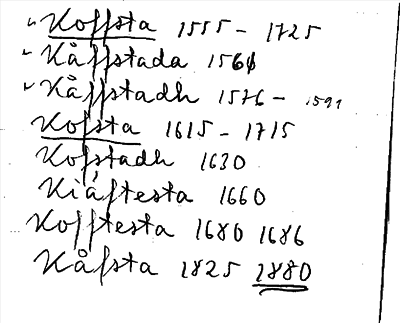 " Koffsta 1555 - 1725
" Kåffstada 1560
" Kåffstadh 1576 - 1591
Kofsta 1615 - 1715
Kofstadh 1630
Kiåftesta 1660
Kofftesta 1680 1686
Kåfsta 1825 1880